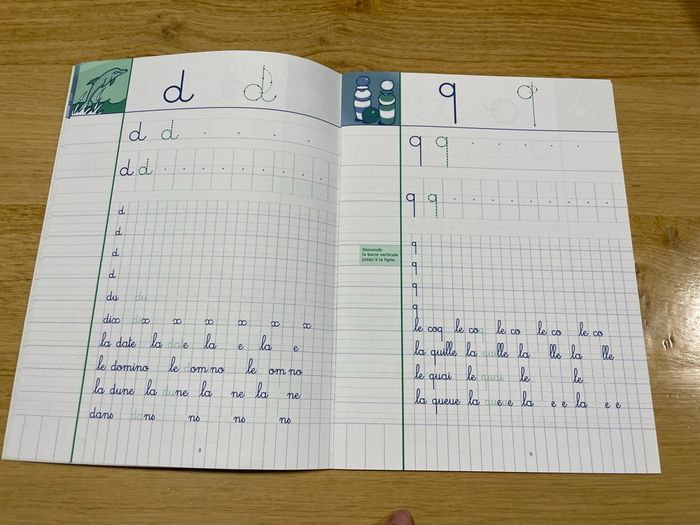 d d
d d
d d
d
d
d
d
du du
dix dix x x x x x
la date la date la e la e
le domino le domino le om no
la dune la dune la ne la ne
dans dans ns ns ns
8
q q
q q
q q
Descends
la barre verticale
jusqu'à la ligne.
q
q
q
q
le coq le coq le co le co le co
la quille la quille la lle la lle
le quai le quai le le
la queue la queue la e e la e e
9